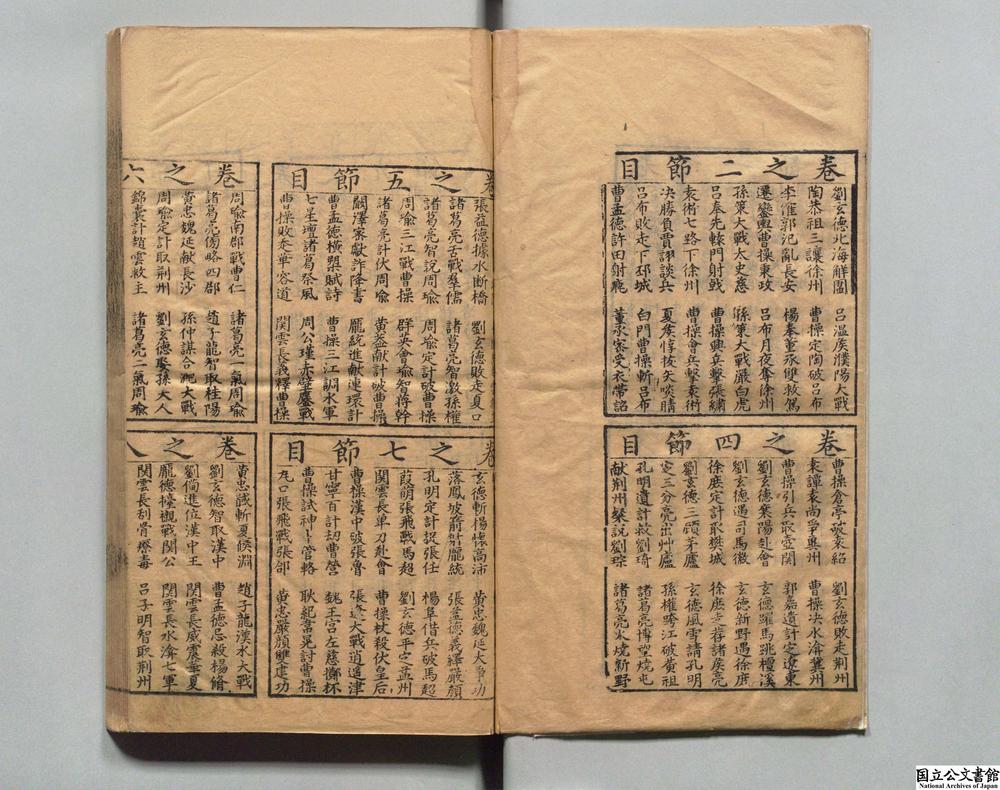 卷之二節目
劉玄德北海解圍　呂温侯濮陽大戰
陶恭祖三讓徐州　曹操定陶破呂布
李傕郭汜亂長安　楊奉董承雙救駕
遷鑾輿曹操秉政　呂布月夜奪徐州
孫策大戰太史慈　孫策大戰嚴白虎
呂奉先轅門射戟　曹操興兵擊張繡
袁術七路下徐州　曹操會兵擊袁術
决勝負賈詡談兵　夏侯惇拔矢啖睛
呂布敗走下邳城　白門曹操斬呂布
曹孟德許田射鹿　董承密受衣帶詔
卷之四節目
曹操倉亭破袁紹　劉玄德敗走荆州
袁譚袁尚爭兾州　曹操决水渰冀州
曹操引兵取壺關　郭嘉遺計定遼東
劉玄德襄陽赴會　玄德躍馬跳檀溪
劉玄德遇司馬徽　玄德新野遇徐庶
徐庶定計取樊城　徐庶走荐諸葛亮
劉玄德三顧茅廬　玄德風雪請孔明
定三分亮出艸廬　孫權跨江破黄祖
孔明遺計救劉琦　諸葛亮博望燒屯
献荆州粲説劉琮　諸葛亮火燒新野
卷之五節目
張益德據水断橋　劉玄德敗走夏口
諸葛亮舌戰羣儒　諸葛亮智激孫權
諸葛亮智説周瑜　周瑜定計破曹操
周瑜三江戰曹操　群英會瑜智蒋幹
諸葛亮計伏周瑜　黄盖献計破曹操
闞澤宻献詐降書　龐統進献連環計
曹孟德横槊賦詩　曹操三江調水軍
七星壇諸葛祭風　周公瑾赤壁鏖戰
曹操敗走華容道　関雲長義釋曹操
卷之七節目
玄德斬楊懷高沛　黄忠魏延大爭功
落鳳坡箭射龐統　張益德義釋嚴顔
孔明定計捉張任　楊阜借兵破馬超
葭萌張飛戰馬超　劉玄德平定益州
関雲長单刀赴會　曹操杖殺伏皇后
曹操漢中破張魯　張遼大戰逍遥津
甘寧百計刼曹營　魏王宫左慈擲杯
曹操試神卜管輅　耿紀韋晃討曹操
瓦口張飛戰張郃　黄忠嚴顔雙建功
卷之六
周瑜南郡戰曹仁　諸葛亮一氣周瑜
諸葛亮傍略四郡　趙子龍智取桂陽
黄忠魏延献長沙　孫仲謀合肥大戰
周瑜定計取荆州　劉玄德娶孫夫人
錦囊計趙雲救主　諸葛亮二氣周瑜
卷之八
黄忠馘斬夏侯淵　趙子龍漢水大戰
劉玄德智取漢中　曹孟德忌殺楊脩
劉備進位漢中王　関雲長威震華夏
龐德擡櫬戰関公　関雲長水渰七軍
関雲長刮骨療毒　呂子明智取荆州
国立公文書館
National Archives of Japan